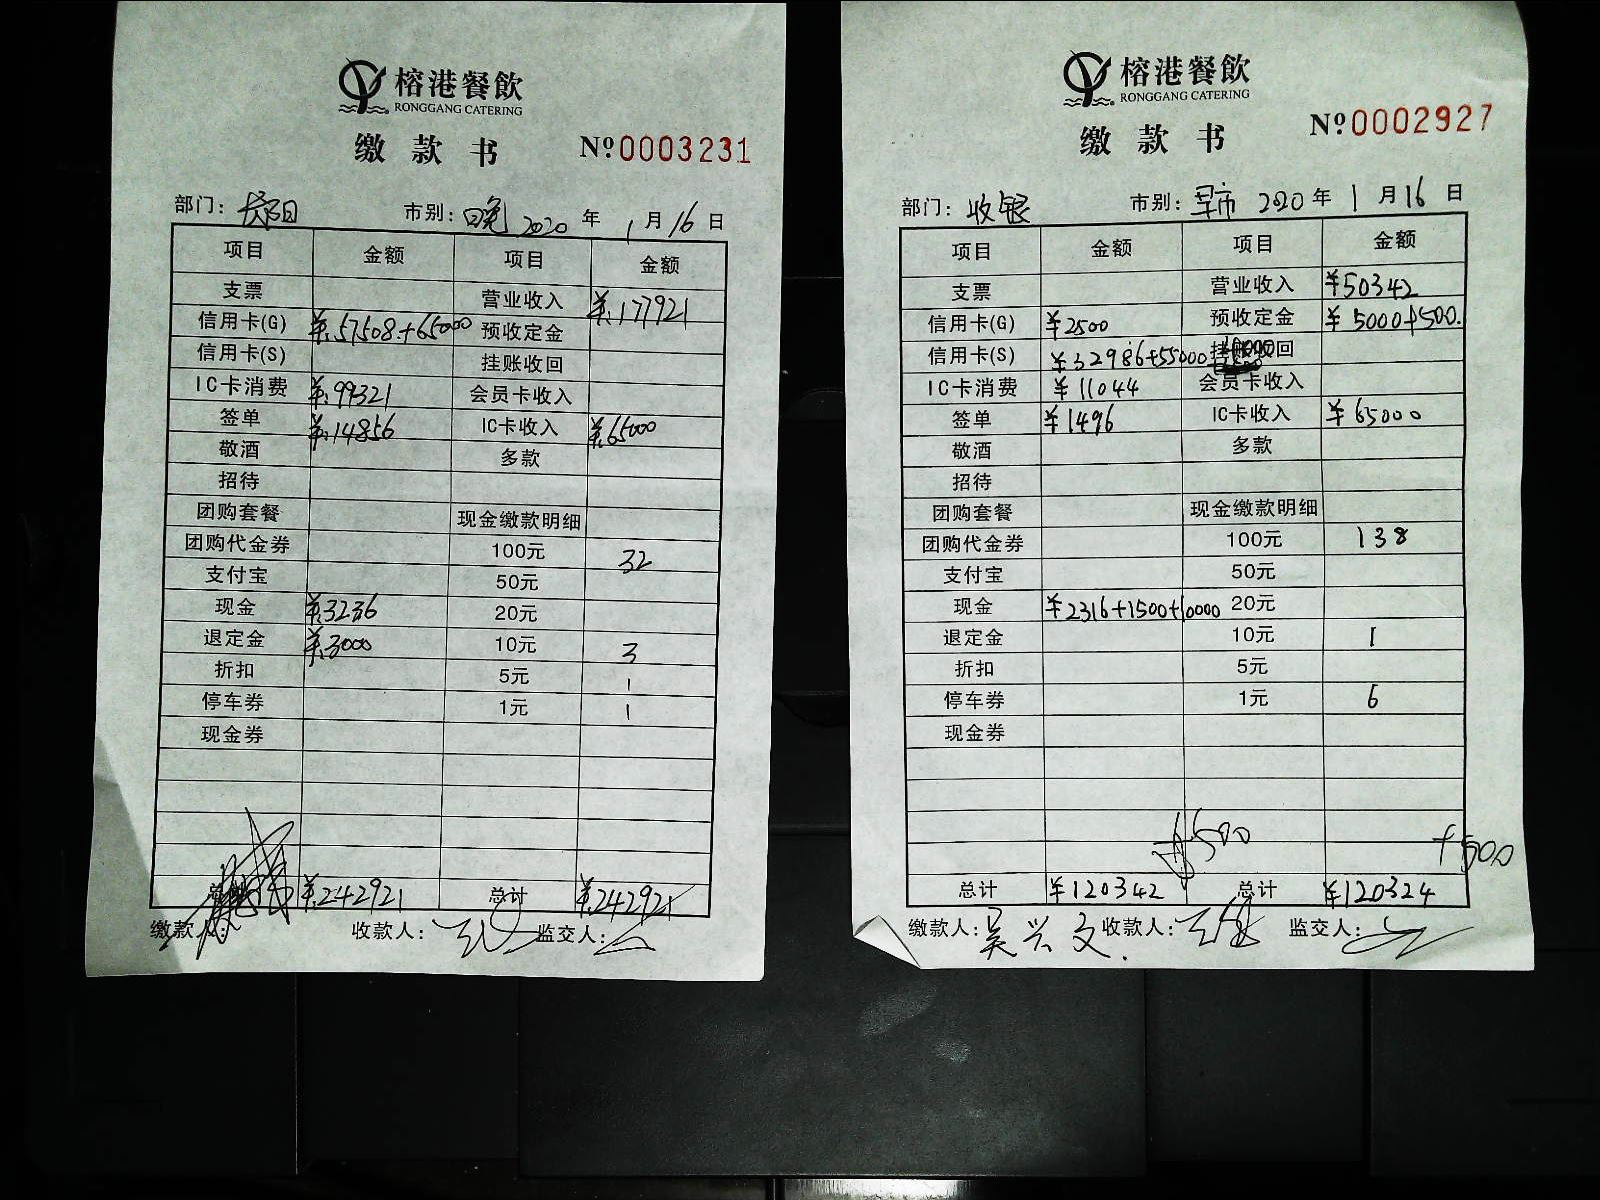 榕港餐飲
RONGGANG CATERING
缴款书
Nº0003231
部门: 市别: 晚 2020年 1月16日
项目 金额 项目 金额
支票 营业收入 ¥:177921
信用卡(G) ¥:57508+65000 预收定金
信用卡(S) 挂账收回
IC卡消费 ¥:99321 会员卡收入
签单 ¥:14856 IC卡收入 ¥:65000
敬酒 多款
招待
团购套餐 现金缴款明细
团购代金券 100元 32
支付宝 50元
现金 ¥:3236 20元
退定金 ¥:3000 10元 3
折扣 5元 1
停车券 1元 1
现金券
总计 ¥:242921 总计 ¥:242921
缴款人: 收款人: 监交人:
榕港餐飲
RONGGANG CATERING
缴款书
Nº0002927
部门: 收银 市别: 早市 2020年 1月16日
项目 金额 项目 金额
支票 营业收入 ¥50342
信用卡(G) ¥2500 预收定金 ¥5000+500.
信用卡(S) ¥32986+55000 挂账收回
IC卡消费 ¥11044 会员卡收入
签单 ¥1496 IC卡收入 ¥65000
敬酒 多款
招待
团购套餐 现金缴款明细
团购代金券 100元 138
支付宝 50元
现金 ¥2316+1500+10000 20元
退定金 10元 1
折扣 5元
停车券 1元 6
现金券
+500 +500
总计 ¥120342 总计 ¥120324
缴款人: 吴兴文. 收款人: 监交人: